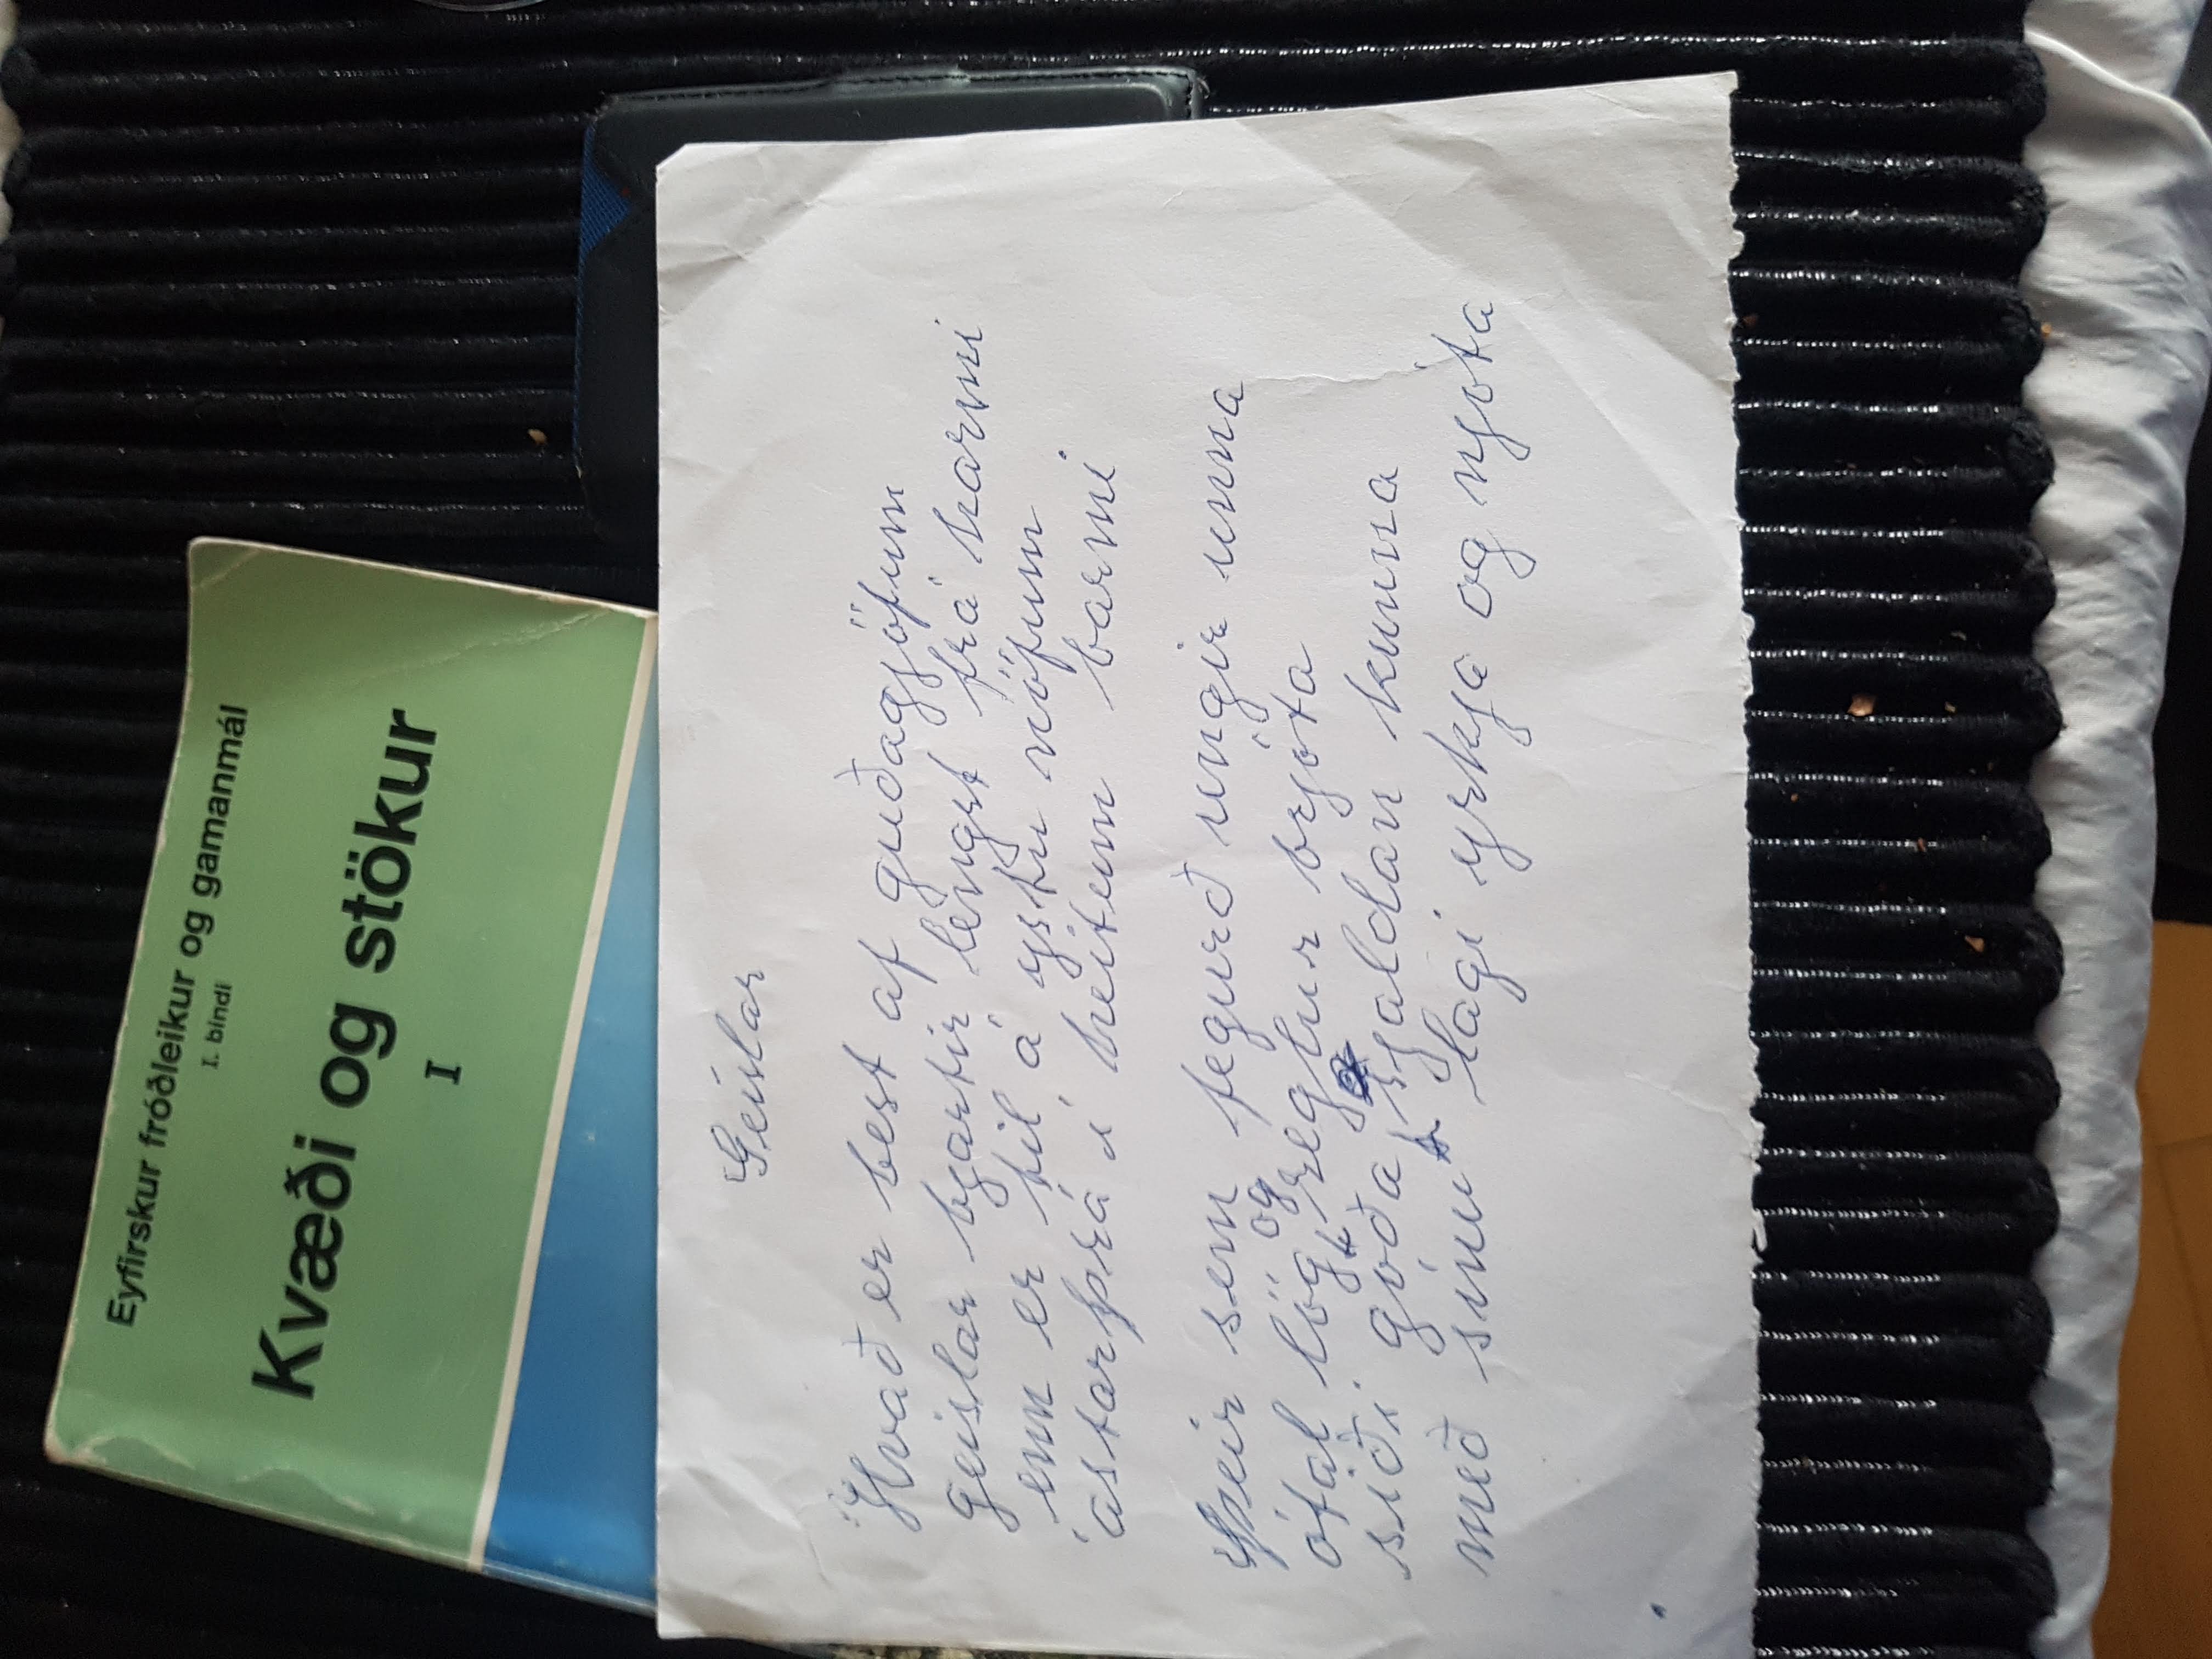 Eyfirskur fróðleikur og gamanmál
I. bindi
Kvæði og stökur
I
Geislar
Hvað er best af guðagjöfum
geislar bjartir lengst frá harmi
enn er til á ystu nöfum
ástarþrá í heitum barmi
Þeir sem fegurð ungir unna
ótal lög og reglur brjóta
siði góða, sjaldan kunna
með sínu lagi yrkja og njóta